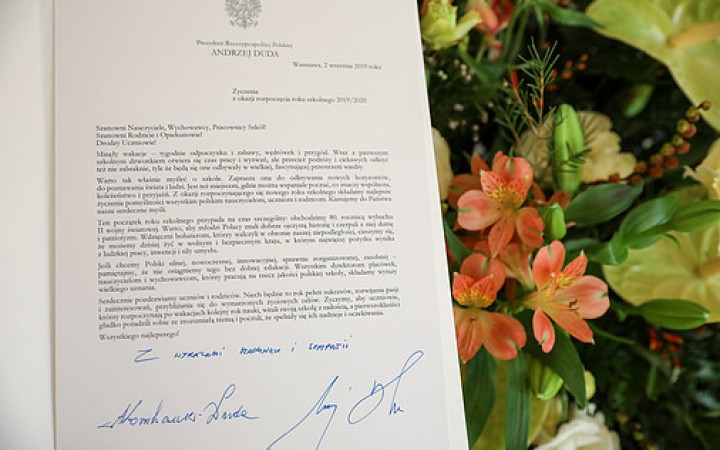 Prezydent Rzeczypospolitej Polskiej
ANDRZEJ DUDA
Warszawa, 2 września 2019 roku
Życzenia
z okazji rozpoczęcia roku szkolnego 2019/2020
Szanowni Nauczyciele, Wychowawcy, Pracownicy Szkół!
Szanowni Rodzice i Opiekunowie!
Drodzy Uczniowie!
Minęły wakacje – tygodnie odpoczynku i zabawy, wędrówek i przygód. Wraz z pierwszym
szkolnym dzwonkiem otwiera się czas pracy i wyzwań, ale przecież podróży i ciekawych odkryć
też nie zabraknie, tyle że będą się one odbywały w wielkiej, fascynującej przestrzeni wiedzy.
Warto tak właśnie myśleć o szkole. Zaprasza ona do odkrywania nowych horyzontów,
do poznawania świata i ludzi. Jest też miejscem, gdzie można wspaniale poczuć, co znaczy wspólnota,
koleżeństwo i przyjaźń. Z okazji rozpoczynającego się nowego roku szkolnego składamy najlepsze
życzenia pomyślności wszystkim polskim nauczycielom, uczniom i rodzicom. Kierujemy do Państwa
nasze serdeczne myśli.
Ten początek roku szkolnego przypada na czas szczególny: obchodzimy 80. rocznicę wybuchu
II wojny światowej. Warto, aby młodzi Polacy znali dobrze ojczystą historię i czerpali z niej dumę
i patriotyzm. Wdzięczni bohaterom, którzy walczyli w obronie naszej niepodległości, cieszymy się,
że możemy dzisiaj żyć w wolnym i bezpiecznym kraju, w którym największy pożytek wynika
z ludzkiej pracy, inwencji i siły umysłu.
Jeśli chcemy Polski silnej, nowoczesnej, innowacyjnej, sprawnie zorganizowanej, zasobnej –
pamiętajmy, że nie osiągniemy tego bez dobrej edukacji. Wszystkim dyrektorom placówek,
nauczycielom i wychowawcom, którzy pracują na rzecz jakości polskiej szkoły, składamy wyrazy
wielkiego uznania.
Serdecznie pozdrawiamy uczniów i rodziców. Niech będzie to rok pełen sukcesów, rozwijania pasji
i zainteresowań, przybliżania się do wymarzonych życiowych celów. Życzymy, aby uczniowie,
którzy rozpoczynają po wakacjach kolejny rok nauki, witali swoją szkołę z radością, a pierwszoklasiści
gładko poradzili sobie ze zrozumiałą tremą i poczuli, że spełniały się ich nadzieje i oczekiwania.
Wszystkiego najlepszego!
Z wyrazami szacunku i sympatii